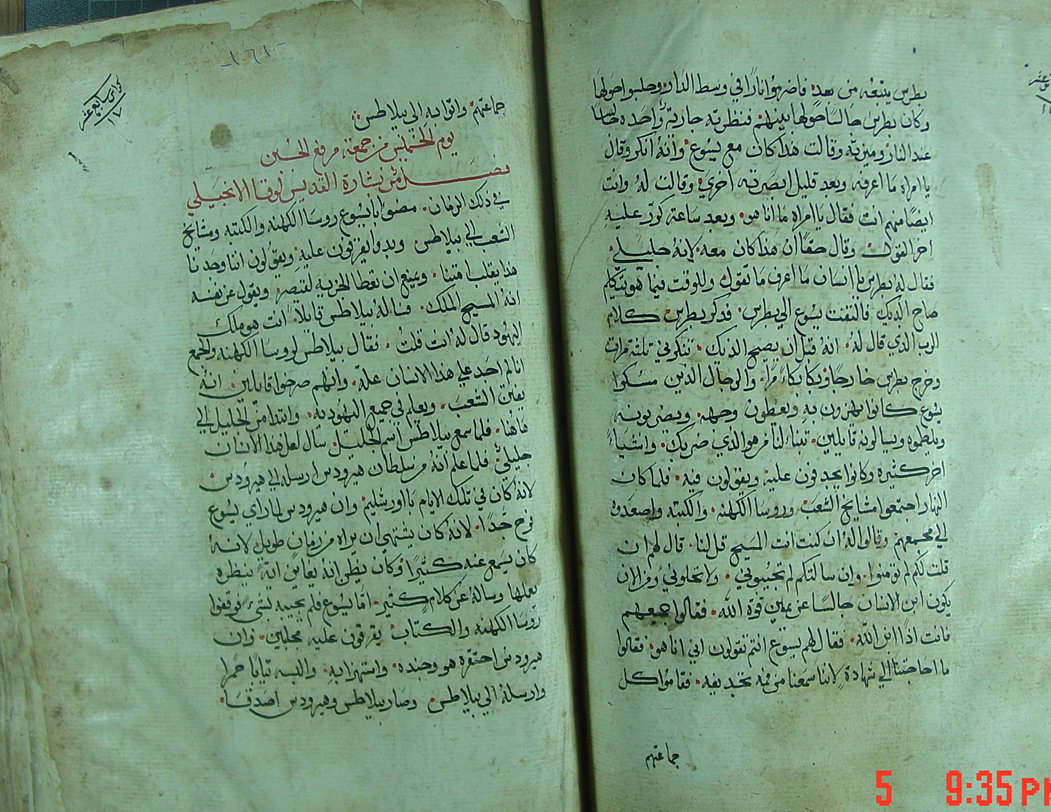 بطرس يتبعه من بعد. فاضرموا نارا في وسط الدار وجلسوا حولها
وكان بطرس جالسا حولها بينهم فنظرته جاريه واحده جالسا
عند النار وميزته وقالت هذا كان مع يسوع وانه انكر وقال
يا امراه ما اعرفه وبعد قليل ابصرته أخري وقالت له وانت
ايضا منهم انت فقال يا امراه ما انا هو. وبعد ساعة كرر عليه
اخر القول وقال حقا ان هذا كان معه لانه جليلي
فقال له بطرس يا انسان ما اعرف ما تقول وللوقت فيما هو يتكلم
صاح الديك فالتفت يسوع الي بطرس. فذكر بطرس كلام
الرب الذي قال له. انه قبل ان يصيح الديك. تنكرني ثلثة مرات
وخرج بطرس خارجا وبكا بكاء مرا. والرجال الذين مسكوا
يسوع كانوا يهزون به ويغطون وجهه. ويضربونه
ويلطموه ويسالونه قايلين. تنبا لنا من هو الذي ضربك. واشياء
اخر كثيره وكانوا يجدفون عليه ويقولون فيه. فلما كان
النهار اجتمعوا مشايخ الشعب وروسا الكهنه. والكتبه واصعدوه
الي مجمعهم وقالوا له ان كنت انت المسيح قل لنا. قال لهم ان
قلت لكم لم تومنوا. وان سالتكم لم تجيبوني. ولا تخلوني ومن الان
يكون ابن الانسان جالسا عن يمين قوة الله. فقالوا جميعهم
فانت اذا ابن الله. فقال لهم يسوع انتم تقولون اني انا هو. فقالوا
ما احاجتنا الي شهادة لاننا سمعنا من فيه تجديفه. فقاموا كل
جماعتهم
١٦١
كراس سابع عشر
١٧
جماعتهم واتوا به الي بيلاطس
يوم الخميس من جمعة مرفع الجبن
فصل من بشارة القديس لوقا الانجيلي
في ذلك الزمان. مضوا بايسوع روسا الكهنه والكتبه ومشايخ
الشعب الي بيلاطس وبدوا يقرفون عليه ويقولون اننا وجدنا
هذا يقلب امتنا. ويمنع ان نعطا الجزيه لقيصر ويقول عن نفسه
انه المسيح الملك. فساله بيلاطس قايلا. انت هو ملك
اليهود قال له انت قلت. فقال بيلاطس لروسا الكهنه والجمع
انا لم اجد علي هذا الانسان علة. وانهم صرخوا قايلين. انه
يفتن الشعب. ويعلم في جميع اليهوديه. وابتدا من الجليل الي
هاهنا. فلما سمع بيلاطس اسم الجليل سال لعل هذا الانسان
جليلي فلما علم انه من سلطان هيرودس ارسله الي هيرودس
لانه كان في تلك الايام باورشليم وان هيرودس لما راي يسوع
فرح جدا. لانه كان يشتهي ان يراه من زمان طويل لانه
كان يسمع عنه كثيرا وكان يظن انه يعاين اية ينظره
يعملها وساله عن كلام كثير. اما يسوع فلم يجيبه بشي فوقفوا
روسا الكهنه والكتاب يقرفون عليه مجلبين. وان
هيرودس احتقره هو وجنده. واستهزا به. والبسه ثيابا حمرا
وارسله الي بيلاطس وصار بيلاطس وهيرودس اصدقا.
5 9:35 PM